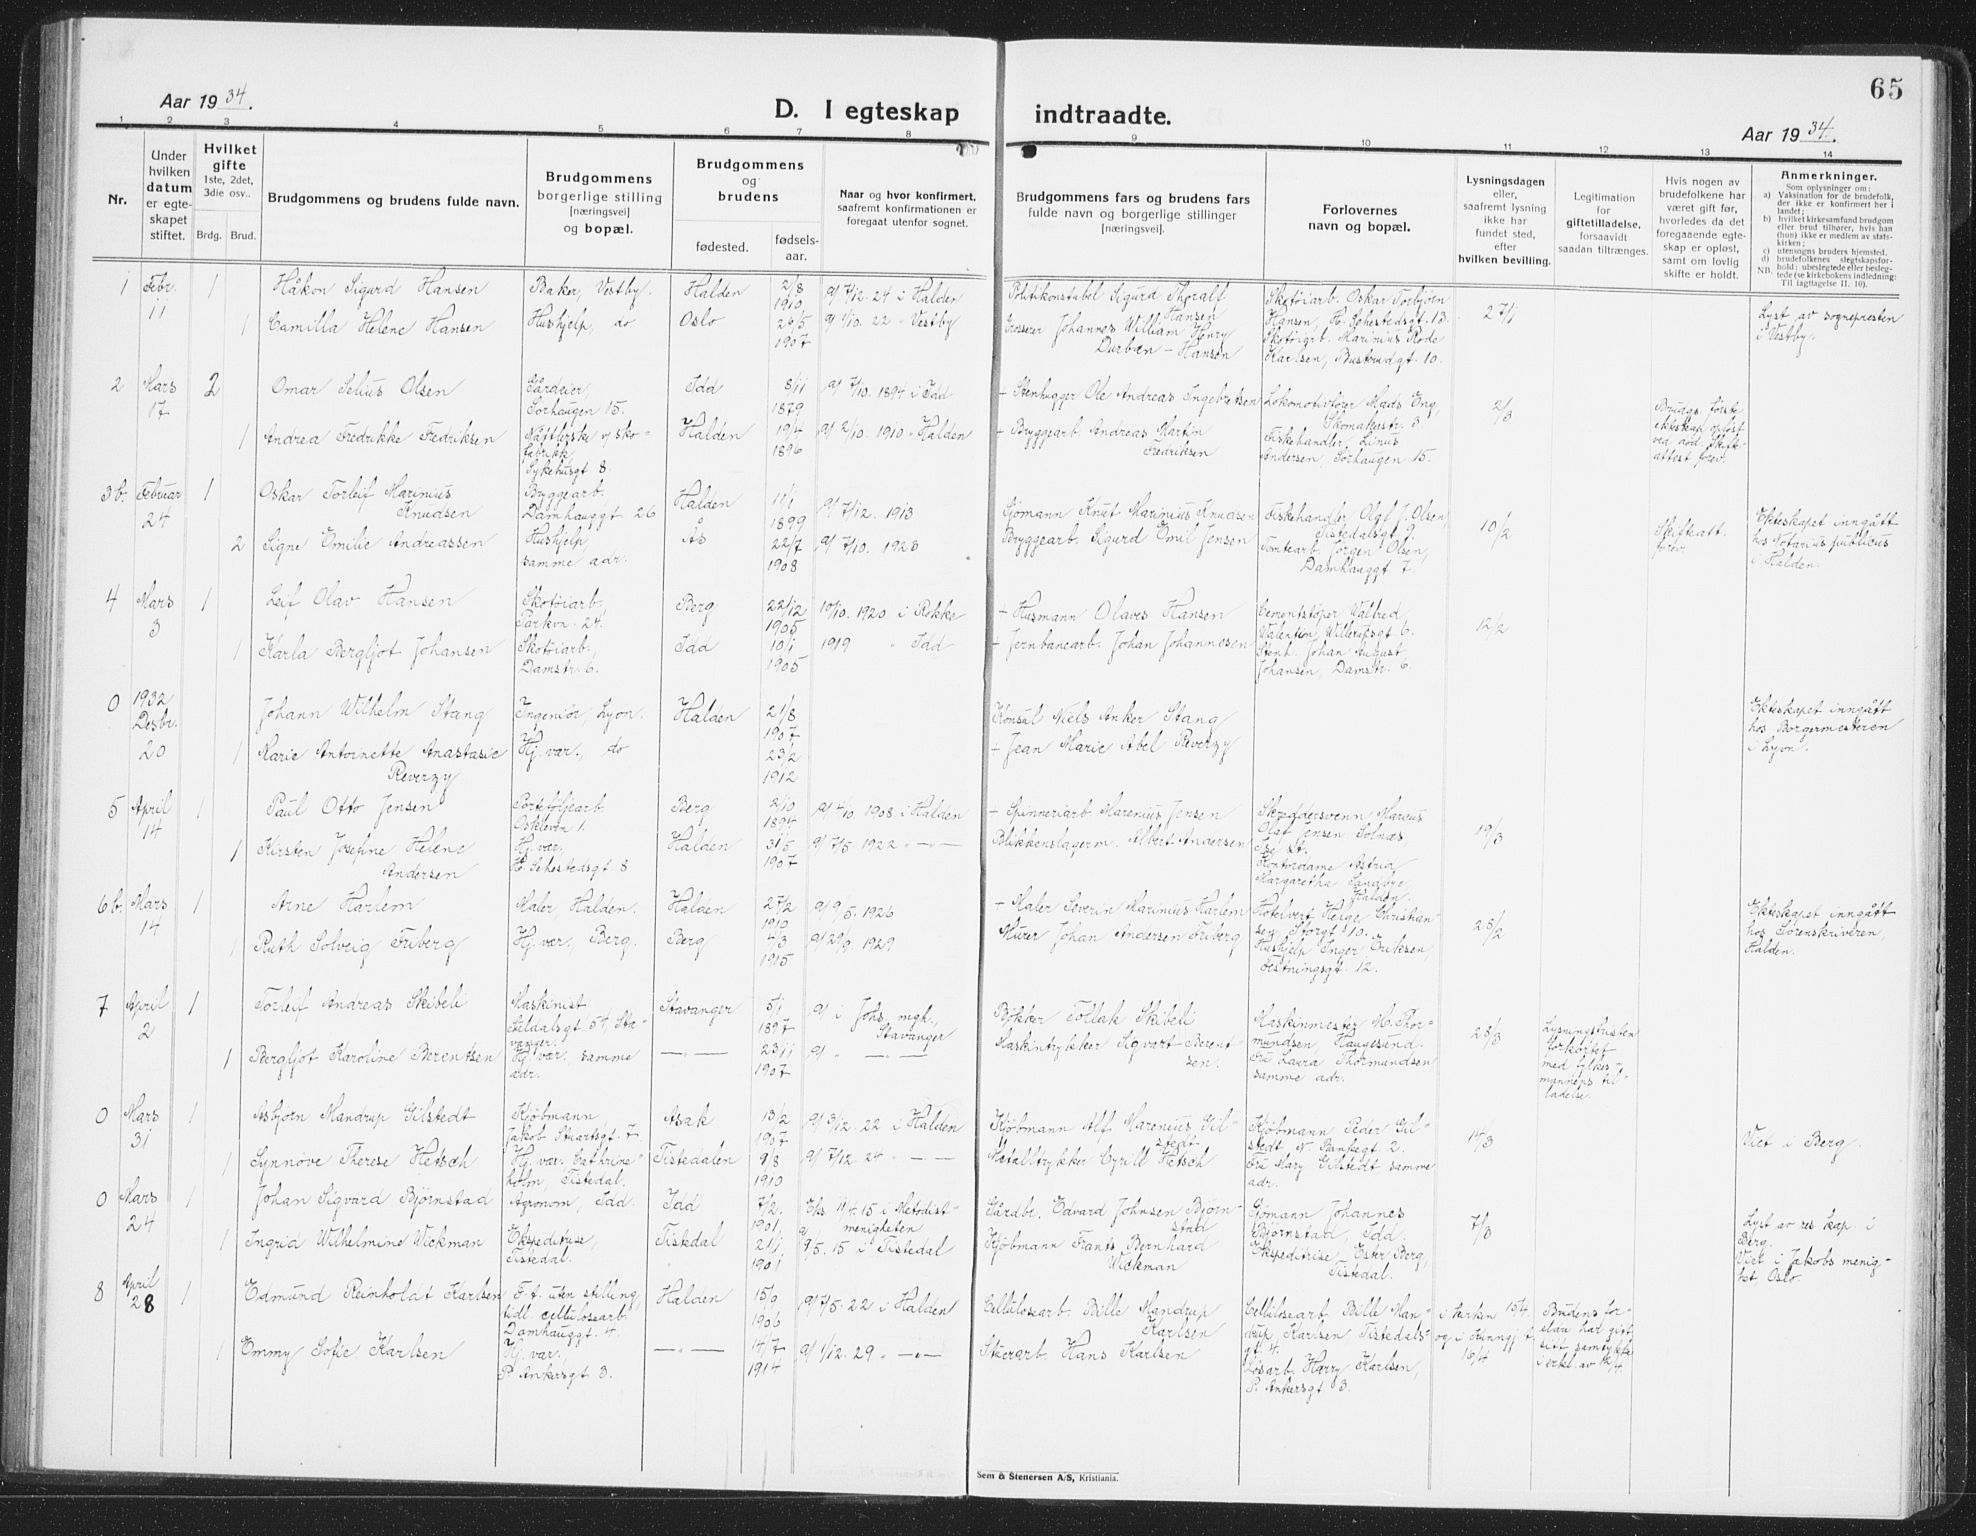 65
Aar 1934.
D. I egteskap indtraadte.
Aar 1934.
1 2 3 4 5 6 7 8 9 10 11 12 13 14
Nr.
Under hvilken datum er egteskapet stiftet.
Hvilket gifte 1ste, 2det, 3die osv..
Brdg. Brud.
Brudgommens og brudens fulde navn.
Brudgommens borgerlige stilling [næringsvei] og bopæl.
Brudgommens og brudens
fødested.
fødselsaar.
Naar og hvor konfirmert, saafremt konfirmationen er foregaat utenfor sognet.
Brudgommens fars og brudens fars fulde navn og borgerlige stillinger [næringsvei].
Forlovernes navn og bopæl.
Lysningsdagen eller, saafremt lysning ikke har fundet sted, efter hvilken bevilling.
Legitimation for giftetilladelse, forsaavidt saadan tiltrænges.
Hvis nogen av brudefolkene har været gift før, hvorledes da det foregaaende egteskap er opløst, samt om lovlig skifte er holdt.
Anmerkninger.
Som oplysninger om:
a) Vaksination for de brudefolk, der ikke er konfirmert her i landet;
b) hvilket kirkesamfund brudgom eller brud tilhører, hvis han (hun) ikke er medlem av statskirken;
c) utensogns bruders hjemsted.
d) brudefolkenes slegtskapsforhold: ubeslegtede eller beslegtede (se kirkebokens indledning:
NB. Til iagttagelse II. 10).
1 Febr. 11 1 Håkon Sigurd Hansen Baker, Vestby. Halden 2/8 1910 g/ 7/12. 24 i Halden Politikonstabel Sigurd Thoralf Hansen Skotøiarb. Oskar Torbjørn Hansen, H. Sehestedsgt. 13. 27/1 Lyst av sognepresten i Vestby.
1 Camilla Helene Hansen Hushjelp, do Oslo 26/5 1907 g/ 1/10. 22 " Vestby Grosserer Johannes William Henry Durban - Hansen Skotøiarb. Marinius Rode Karlsen, Busterudgt. 10.
2 Mars 17 2 Omar Selius Olsen Gårdeier, Sørhaugen 15. Idd 8/11 1879 g/ 7/10. 1894 i Idd + Stenhugger Ole Andreas Ingebretsen Lokomotivfører Mads Eng, Skomakerstr. 3 2/3 Brudgs. første ekteskap opløst ved død. Skifteattest frev.
1 Andrea Fredrikke Fredriksen Nåtlerske v/ skofabrikk Sykehusgt 8 Halden 19/4 1896 g/ 2/10. 1910 " Halden + Bryggearb. Andreas Martin Fredriksen Fiskehandler Linus Andersen, Sørhaugen 15.
3b. Februar 24 1 Oskar Torleif Marinius Knudsen Byggearb. Damhauggt 26 Halden 11/1 1899 g/ 7/12. 1913 Sjømann Knut Marinius Knudsen Fiskehandler Olaf J. Olsen, Tistedalsgt 9. 10/2 Skifteatt. frev. Ekteskapet inngått hos Notarius publicus i Halden.
2 Signe Emilie Andreassen Hushjelp, samme adr. Ås 22/7 1908 g/ 7/10. 1923 Bryggearb. Sigurd Emil Jensen Tomtearb. Jørgen Olsen, Damhauggt 7.
4 Mars 3 1 Leif Olav Hansen Skotøiarb., Parkvn. 24. Berg 22/12 1905 10/10. 1920 i Rokke + Husmann Olaves Hansen Cementstøper Walfred Valentin, Willerupsgt 6. 12/2
1 Karla Bergljot Johansen Skotøiarb., Damstr. 6. Idd 10/1 1905 1919 " Idd + Jernbanearb. Johan Johannesen Stenh. Johan August Johansen, Damstr. 6.
0 1932 Desbr. 20 Johann Wilhelm Stang Ingeniør, Lyon. Halden 21/8 1907 Konsul Niels Anker Stang Ekteskapet inngått hos Borgermesteren i Lyon.
1 Marie Antoinette Anastasie Reverzy Hj. vær., do 23/2 1912 + Jean Marie Abel Reverzy
5 April 14 1 Paul Otto Jensen Porteføljearb. Oskleven 1. Berg 2/10 1894 g/ 4/10. 1908 i Halden + Spinneriarb. Marenius Jensen Skreddersvenn Marcus Olaf Jensen Solnæs, Ise st. 19/3
1 Kirsten Josefine Helene Andersen Hj. vær. H. Sehestedsgt 8 Halden 31/5 1907 g/ 7/5. 1922 — " — Blikkenslagerm. Albert Andersen Kontordame Astrid Margaretha Sandbye, Halden.
6b. Mars 14 1 Arne Harlem Maler, Halden. Halden 27/2 1910 g/ 9/5. 1926 + Maler Severin Marinius Harlem Hotelvert Helge Christiansen Storgt 10. 28/2 Ekteskapet inngått hos Sorenskriveren, Halden.
1 Ruth Solveig Friberg Hj. vær, Berg. Berg 4/3 1915 g/ 29/9. 1929 Murer Johan Andersen Friberg Hushjelp Inger Eriksen, Festningsgt. 12.
7 April 2 1 Torleif Andreas Skibeli Maskinist Seldalsgt 54, Stavanger. Stavanger 5/1 1897 g/ i Johs. mgh., Stavanger Bøkker Tollak Skibeli Maskinmester M. Thormundsen, Haugesund. 28/3 Lysningsfristen forkortet med fylkesmannens tilladelse.
1 Bergljot Karoline Berentsen Hj. vær. samme adr. — " — 23/11 1907 g/ " — " — Maskintrykker Sigvart Berentsen. Fru Laura Thormundsen samme adr.
0 Mars 31 1 Asbjørn Mandrup Gilstedt Kjøbmann Jakob Stuartsgt. 7 Asak 13/2 1907 g/ 3/12. 22 i Halden Kjøbmann Alf Marenius Gilstedt Kjøbmann Peder Gilstedt N. Bankegt 2. 14/3 Viet i Berg.
1 Synnøve Therese Hetsch Hj. vær. Cathrineholm, Tistedal. Tistedalen 9/8 1910 g/ 7/12. 24 " — " — Metalltrykker Cyrill Hetsch Fru Mary Gilstedt samme adr.
0 Mars 24 1 Johan Sigvard Bjørnstad Agronom, Idd. Idd 7/2. 1901 Chs. 11/4. 15 i Metodistmenigheten Gårdbr. Edvard Johnsen Bjørnstad Sjømann Johannes Bjørnstad, Idd. 7/3 Lyst av res. kap. i Berg. Viet i Jakobs menighet, Oslo.
1 Ingrid Wilhelmine Wickman Ekspeditrise, Tistedal. Tistedal 21/1. 1901 g 9/5. 15 i Tistedal Kjøbmann Frants Bernhard Wickman Ekspeditrise, Ester Berg, Tistedal.
8 April 28 1 Edmund Reinholdt Karlsen F. t. uten stilling, tidl. cellulosearb. Damhauggt. 4. Halden 15/9 1906 g/ 7/5. 22 i Halden Cellulosearb. Bille Mandrup Karlsen Cellulosearb. Bille Mandrup, Karlsen Tistedalsgt. 4. i kirken 15/4. og i kunngj. t. 16/4 Brudens foreldre har gitt sitt samtykke i erkl. av 12/4.
1 Emmy Sofie Karlsen Hj. vær., P. Ankersgt 3. — " — 14/7 1914 g/ 1/12. 29 " — " — Stuerarb. Hans Karlsen Løsarb. Harry Karlsen, P. Ankersgt 3.
Sem & Stenersen A/S, Kristiania.